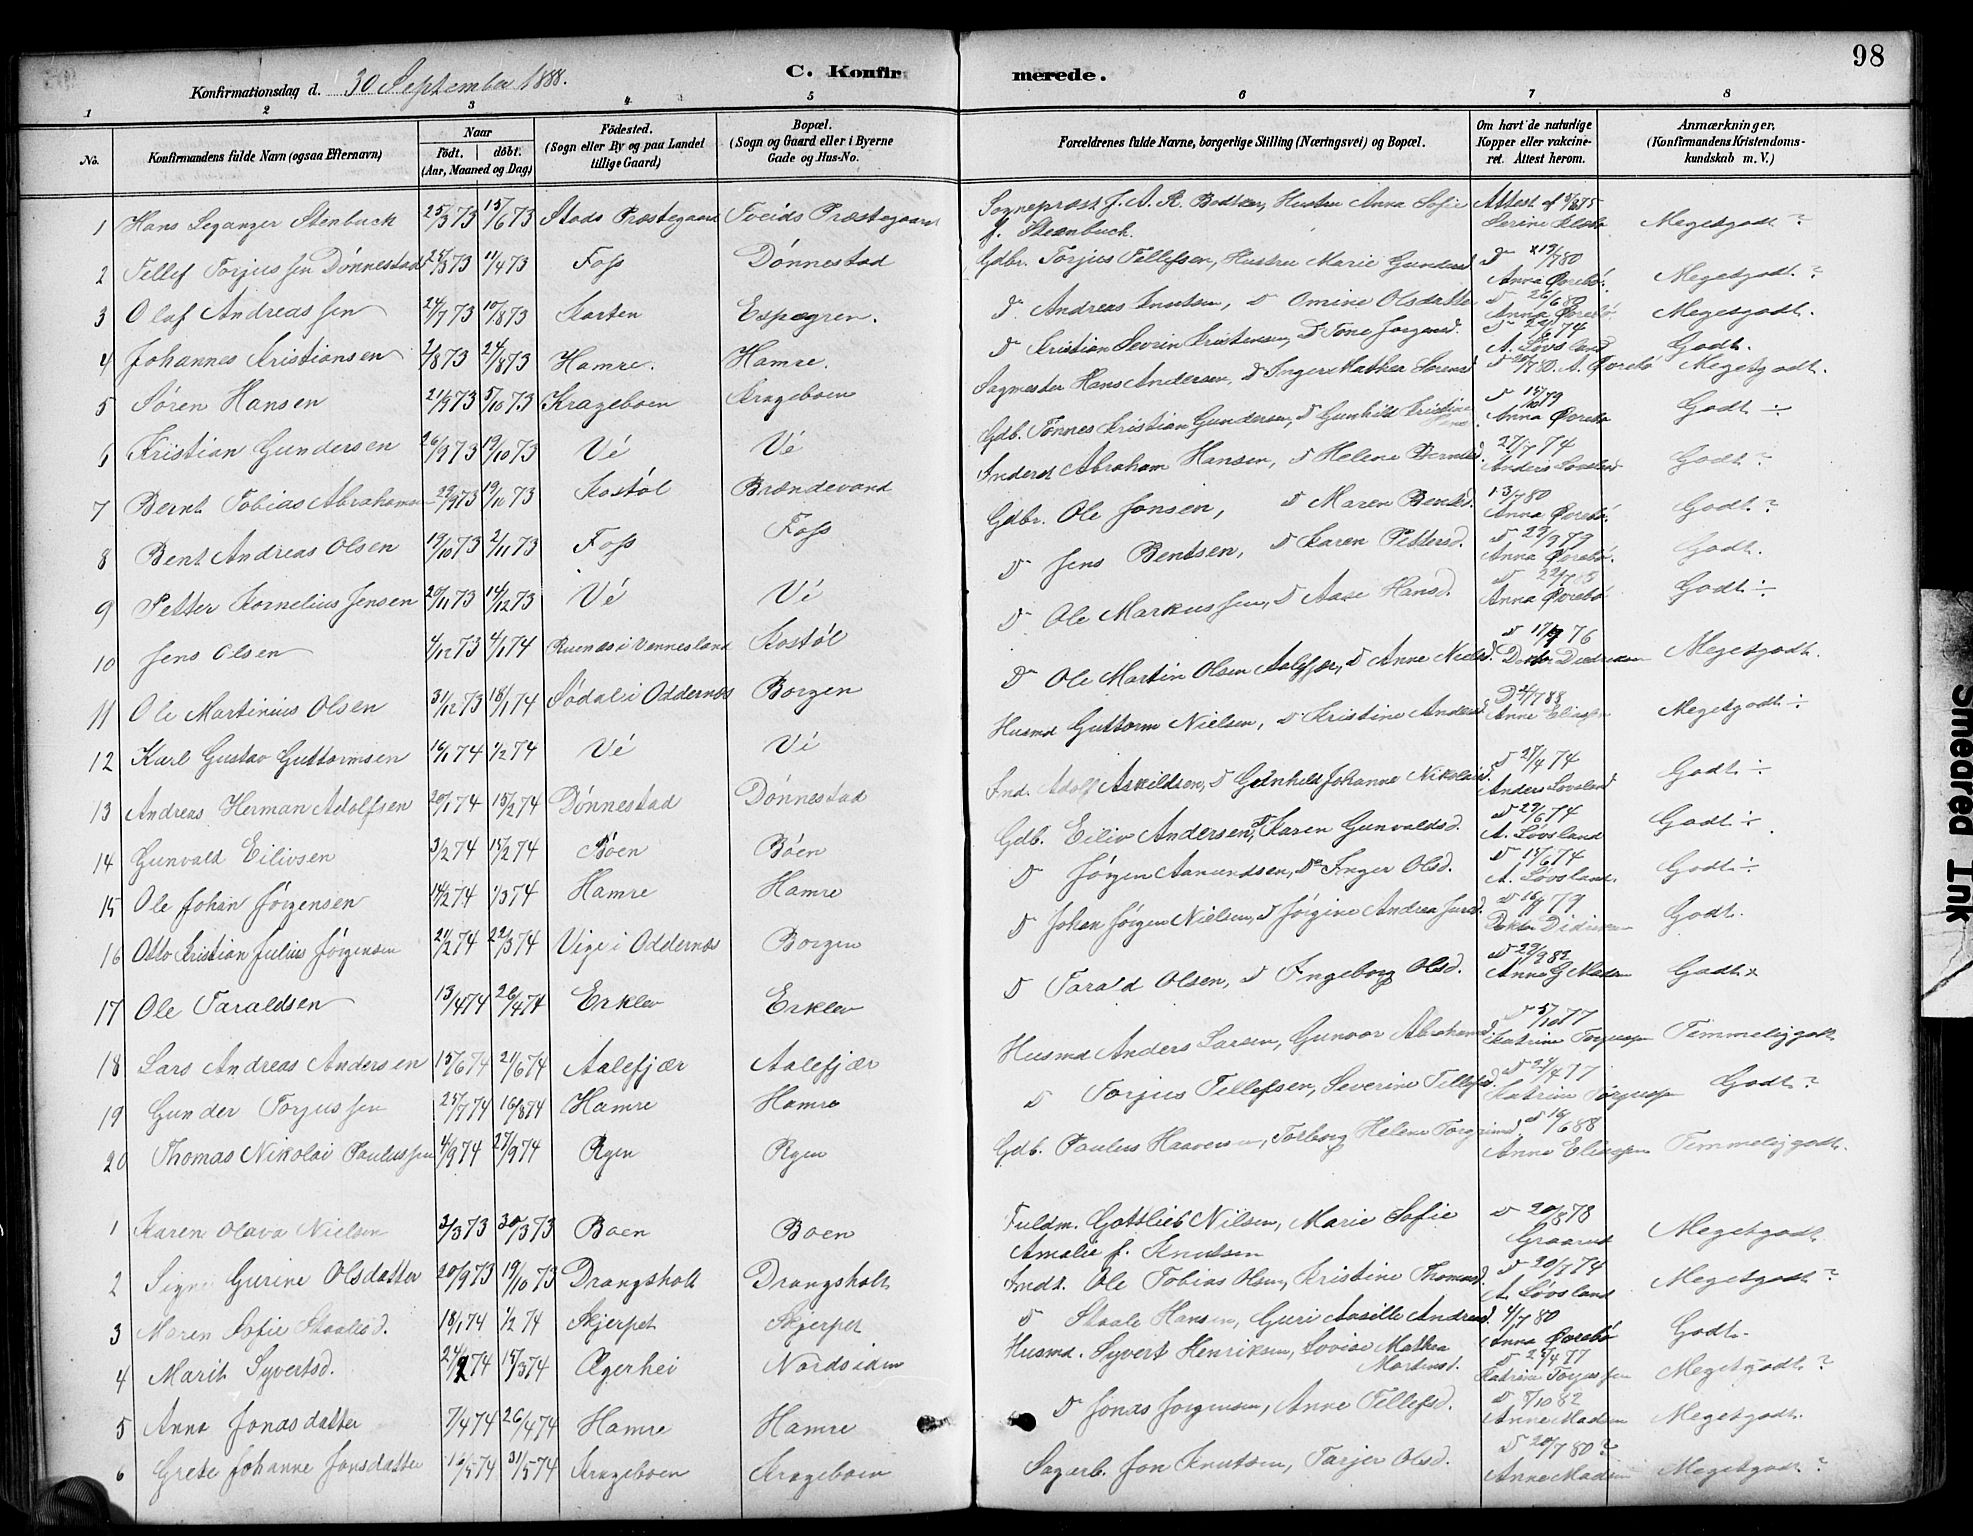 98
Konfirmationsdag d. 30 September 1888.
C. Konfirmerede.
1 2 3 4 5 6 7 8
No.
Konfirmandens fulde Navn (ogsaa Efternavn)
Naar
Født. døbt.
(Aar, Maaned og Dag)
Födested.
(Sogn eller By og paa Landet
tillige Gaard)
Bopæl.
(Sogn og Gaard eller i Byerne
Gade og Hus-No.
Forældrenes fulde Navne, borgerlige Stilling (Næringsvei) og Bopæl.
Om havt de naturlige
Kopper eller vakcine-
ret. Attest herom.
Anmærkninger.
(Konfirmandens Kristendoms-
kundskab m. V.)
1 Hans Leganger Stenbuck 25/3 73 15/6 73 Stods Præstegaard Tveids Præstegaard Sogneprest J. A. R. Hustru Anna Sofie Attest af Megetgodt ?
f. Steenbuch.
2 Tellef Torjussen Dønnestad 11/4 73 Foss Dønnestad Gdbr. Torjus Tellefsen, Hustru Marie Gundersd D 19/7 80 Anna Øvrebø. Megetgodt ?
3 Olaf Andreassen 24/7 73 10/8 73 Karten Espegren. D Andreas Knutsen, D Omine Olsdatter D 26/6 80 Anna Øvrebø. Megetgodt.
4 Johannes Kristiansen 2/8 73 24/8 73 Hamre. Hamre. D Kristian Severin Kristensen, D Tone Jørgensd. D 24/6 74 A. Løvsland Godt.
5 Søren Hansen 21/9 73 5/10 73 Krageboen Krageboen Sagmester Hans Andersen, D Inger Mathea Sørensd D 20/7 80. A. Øvrebø Megetgodt.
6 Kristian Gundersen 26/9 73 19/10 73 Vé Vé Gdb. Tønnes Kristian Gundersen, D Gunhild Kristine D 15/10 79 Anna Øvrebø Godt ÷
7 Bernt Tobias Abrahamsen 29/9 73 19/10 73 Kostøl Brændevand Inderst Abraham Hansen, D Helene Berntsd. 27/7 74 Anders Løvsland Godt ?
8 Bent Andreas Olsen 19/10 73 2/11 73 Foss Foss Gdbr. Ole Jonsen, D Maren Bentsd. 13/7 80 Anna Øvrebø. Godt ?
9 Petter Kornelius Jensen 20/11 73 14/12 73 Vé Vé D Jens Bentsen, D Karen Pettersd. D 25/9 79 Anna Øvrebø. Godt.
10 Jens Olsen 4/12 73 4/1 74 i Vennesland Kostøl D Ole Markussen, D Aase Hansd. Anna Øvrebø Godt ÷
11 Ole Martinius Olsen 31/12 73 18/1 74 Sødal i Oddernes Borgen D Ole Martin Olsen Aalefjær, D Anne Nielsd. D 17/9 76 Megetgodt.
12 Karl Gustav Guttormsen 16/1 74 1/2 74 Vé Vé Husmd Guttorm Nielsen, D Kristine Andersd D 2/7 88 Anne Eliassen Megetgodt ÷
13 Andreas Herman Adolfsen 20/1 74 15/2 74 Dønnestad Dønnestad Ind. Adolf Askildsen, D Gunhild Johanne Nikolaisd. D 27/4 74 Anders Løvsland Godt ÷
14 Gunvald Eilivsen 3/2 74 15/2 74 Bóen Bóen Gdb. Eiliv Andersen, D Karen Gunvaldsd. D 29/6 74 A. Løvsland Godt ÷
15 Ole Johan Jörgensen 14/2 74 1/3 74 Hamre Hamre D Jørgen Aanundsen, D Inger Olsd. D 15/6 74 A. Løvsland. Godt ÷
16 Otto Kristian Julius Jörgensen 21/2 74 22/3 74 Vige i Oddernes Borgen D Johan Jörgen Nielsen, D Jörgine Andrea D 16/9 79 Godt.
17 Ole Taraldsen 13/4 74 26/4 74 Erklev Erklev D Tarald Olsen, D Ingeborg Olsd. D 29/9 82 Anne G Madsen Godt
18 Lars Andreas Andersen 15/6 74 21/6 74 Aalefjær Aalefjær Husmd Anders Larsen, Gunvor Abrahamsd. D 5/10 77 Katrine Torjussen Temmelig godt
19 Gunder Torjussen 25/7 74 16/8 74 Hamre Hamre D Torjus Tellefsen, Severine Tellefsd. D 24/4 77 Katrine Torjussen Godt ?
20 Thomas Nikolai Paulussen 4/9 74 27/9 74 Rÿen Rÿen Gdb. Paulus Haaversen, Torborg Helene Torgrimsd D 16/6 88 Anne Eliassen Temmelig godt.
1 Karen Olava Nielsen 2/3 73 30/3 73 Boen Boen Fuldm. Gottlieb Nilsen, Marie Sofie D 20/8 78 Graarud Megetgodt.
Amalie f. Knutsen
2 Signe Gurine Olsdatter 20/9 73 19/10 73 Drangsholt Drangsholt Indt. Ole Tobias Olsen, Kristine Thomasd. D 20/7 74 A. Løvsland Megetgodt ?
3 Maren Sofie Staalesd. 18/1 74 1/2 74 Skjerpet Skjerpet D Staale Hansen, Guri Aasille Andersd. 4/7 80 Anna Øvrebø Godt.
4 Marit Syvertsd. 24/2 74 15/3 74 Ægerhei Nordsiden Husmd. Syvert Henriksen, Lovise Mathea D 25/4 77 Katrine Torjussen Megetgodt ?
Martinsd.
5 Anna Jonasdatter 7/4 74 26/4 74 Hamre Hamre D Jonas Jørgensen, Anne Tellefsd. D 8/10 82 Anne Madsen Megetgodt.
6 Grete Johanne Jonsdatter 16/5 74 31/5 74 Krageboen Krageboen Sagarb. Jon Knutsen, Tarjer Olsd. D 20/7 80 ? Anne Madsen Megetgodt ?
Smeared Ink